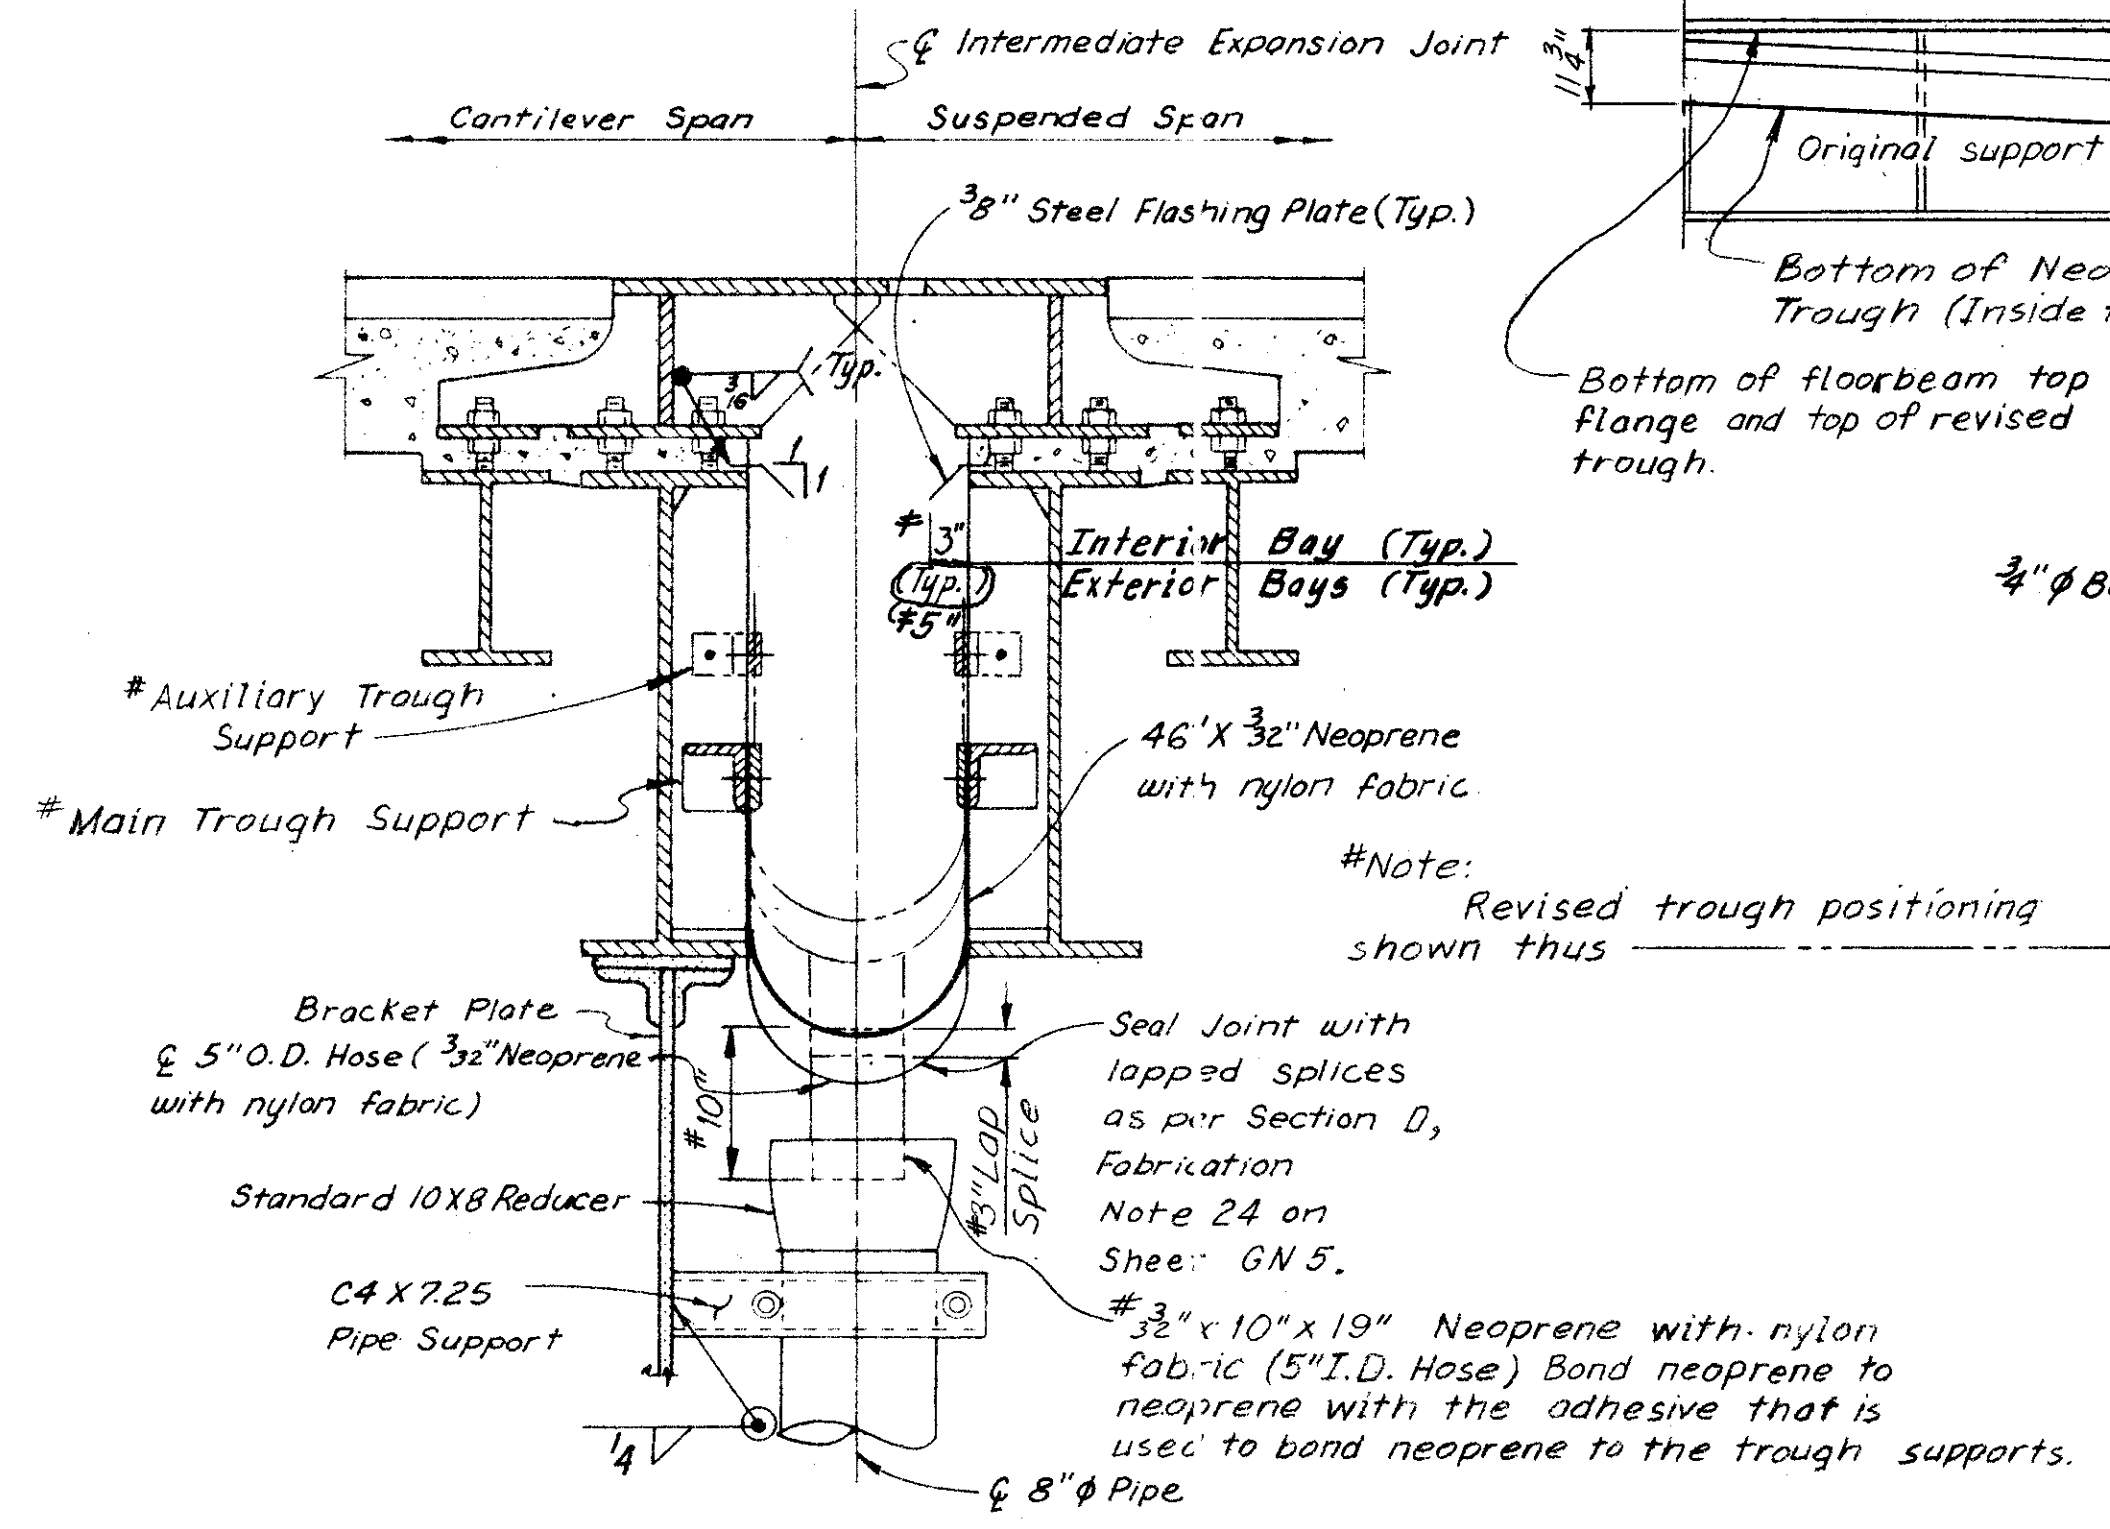 ℄ Intermediate Expansion Joint
Cantilever Span
Suspended Span
3/8" Steel Flashing Plate (Typ.)
11 3/4"
Original support
Bottom of Neo
Trough (Inside
Bottom of floorbeam top
flange and top of revised
trough.
3/16
Typ.
1
1
# 3"
Interior Bay (Typ.)
(Typ.)
Exterior Bays (Typ.)
(#5"
3/4" φ B
# Auxiliary Trough
Support
# Main Trough Support
46" X 3/32" Neoprene
with nylon fabric
#Note:
Revised trough positioning
shown thus
Bracket Plate
℄ 5" O.D. Hose (3/32" Neoprene
with nylon fabric)
#10"
#3" Lap
Splice
Seal Joint with
lapped splices
as per Section D,
Fabrication
Note 24 on
Sheet GN 5.
Standard 10X8 Reducer
C4 X 7.25
Pipe Support
# 3/32" x 10" x 19" Neoprene with nylon
fabric (5" I.D. Hose) Bond neoprene to
neoprene with the adhesive that is
used to bond neoprene to the trough supports.
1/4
℄ 8" φ Pipe